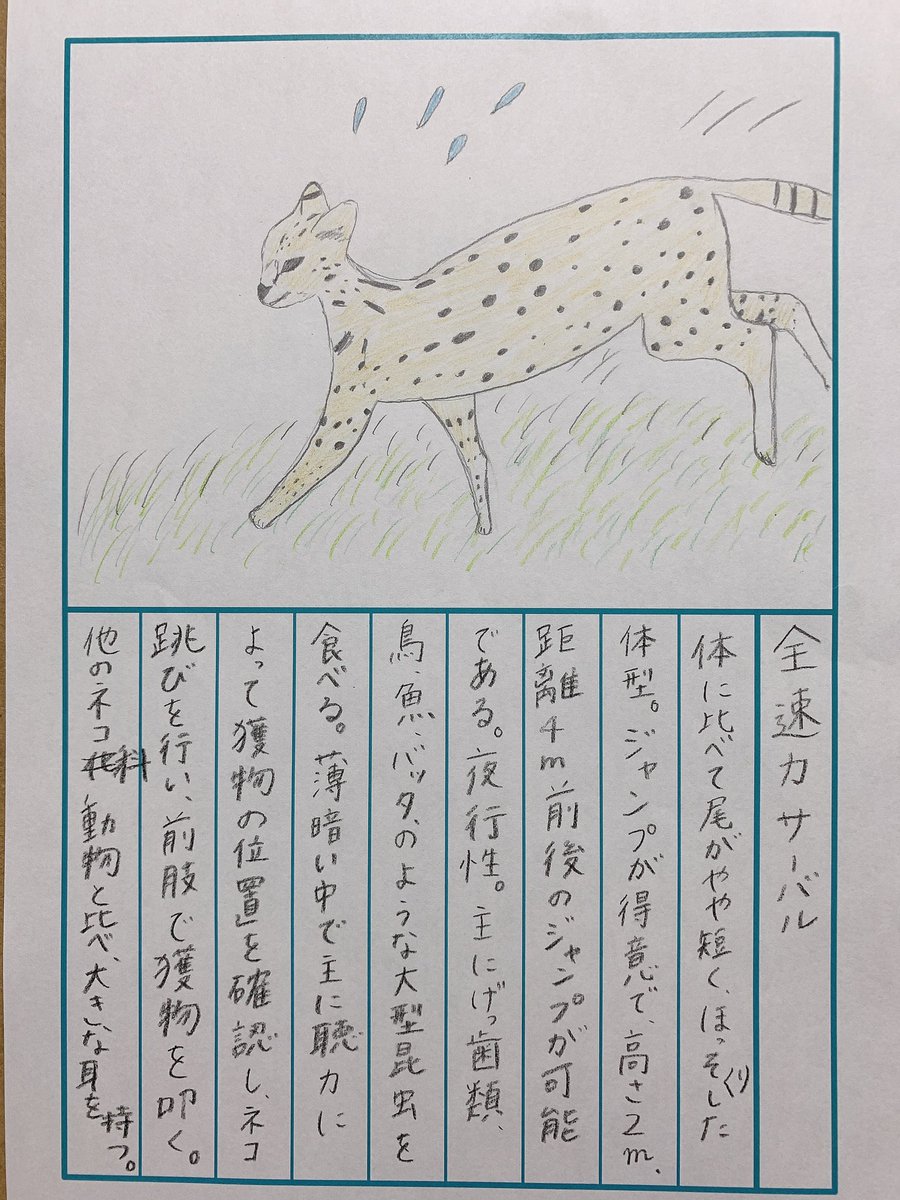 全速力サーバル
体に比べて尾がやや短く、ほっそくりした
体型。ジャンプが得意で、高さ2m、
距離4m前後のジャンプが可能
である。夜行性。主にげっ歯類、
鳥、魚、バッタのような大型昆虫を
食べる。薄暗い中で主に聴力に
よって獲物の位置を確認し、ネコ
跳びを行い、前肢で獲物を叩く。
他のネコ科動物と比べ、大きな耳を持つ。